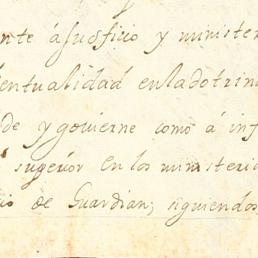 nte á su oficio y minister
entualidad en la dotrin
de y govierne como á inf
sugeror en los ministeri
io de Guardian; siguiendos